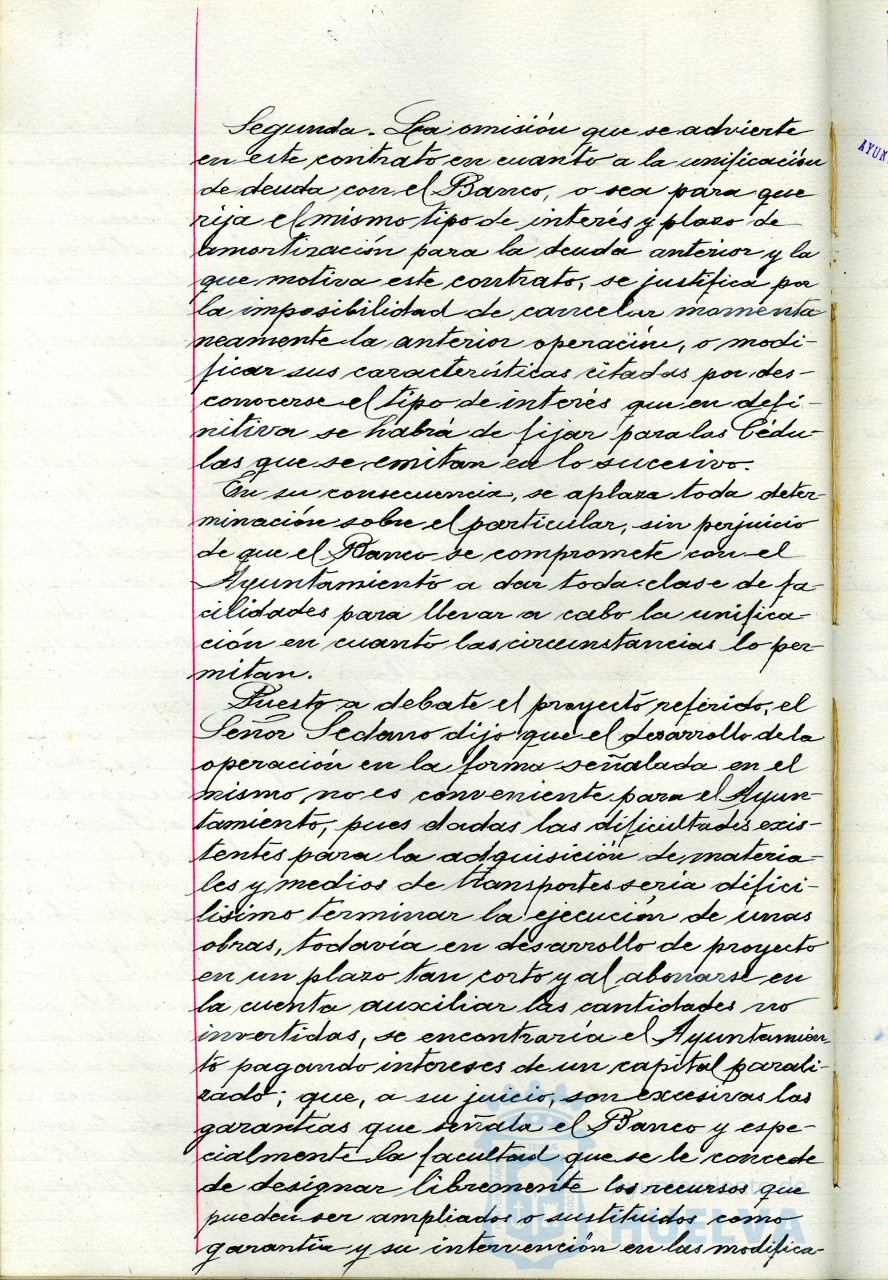 Segunda. La omisión que se advierte
en este contrato en cuanto a la unificación
de deuda con el Banco, o sea para que
rija el mismo tipo de interés y plazo de
amortización para la deuda anterior y la
que motiva este contrato, se justifica por
la imposibilidad de cancelar momenta-
neamente la anterior operación, o modi-
ficar sus características citadas por des-
conocerse el tipo de interés que en defi-
nitiva se habrá de fijar para las Cédu-
las que se emitan en lo sucesivo.
En su consecuencia, se aplaza toda deter-
minación sobre el particular, sin perjuicio
de que el Banco se compromete con el
Ayuntamiento a dar toda clase de fa-
cilidades para llevar a cabo la unifica-
ción en cuanto las circunstancias lo per-
mitan.
Puesto a debate el proyecto referido, el
Señor Sedano dijo que el desarrollo de la
operación en la forma señalada en el
mismo, no es conveniente para el Ayun-
tamiento, pues dadas las dificultades exis-
tentes para la adquisición de materia-
les y medios de transportes sería difici-
lisimo terminar la ejecución de unas
obras, todavía en desarrollo de proyecto
en un plazo tan corto y al abonarse en
la cuenta auxiliar las cantidades no
invertidas, se encontraría el Ayuntamien-
to pagando intereses de un capital parali-
zado; que, a su juicio, son excesivas las
garantías que señala el Banco y espe-
cialmente la facultad que se le concede
de designar libremente los recursos que
pueden ser ampliados o sustituidos como
garantía y su intervención en las modifica-
AYUN
Ayuntamiento de
HUELVA